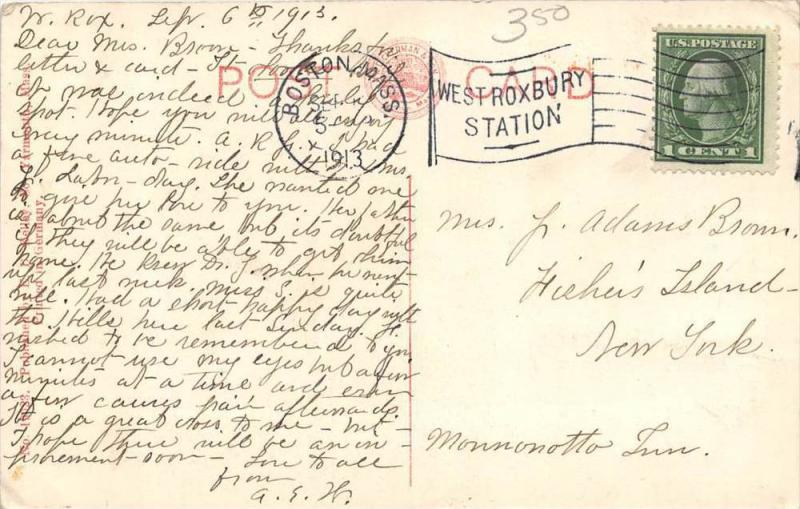 W. Rox. Sep. 6th 1913.
Dear Mrs. Brown - Thanks for
letter & card - It
It was indeed a lovely
spot. Hope you will enjoy
every minute. A. R. & I had
a fine auto-ride with Mrs.
Labor-day. She wanted me
to give her love to you. Her father
is about the same but its doubtful
if they will be able to get him
home. He knew Dr. J. when he went
up last week. Miss S. is quite
ill. Had a short happy day with
the Hills here last Sunday. H.
wished to be remembered to you
I cannot use my eyes but a few
minutes at a time and even
a few causes pain afterwards.
It is a great cross to me - but -
I hope there will be an im-
provement soon - Love to all
from
A. E. H.
350
POST CARD
BOSTON, MASS.
SEP
1913
WEST ROXBURY
STATION
U.S. POSTAGE
1 CENT 1
Mrs. J. Adams Brown.
Fisher's Island -
New York.
Monnonotto Inn.
Germany.